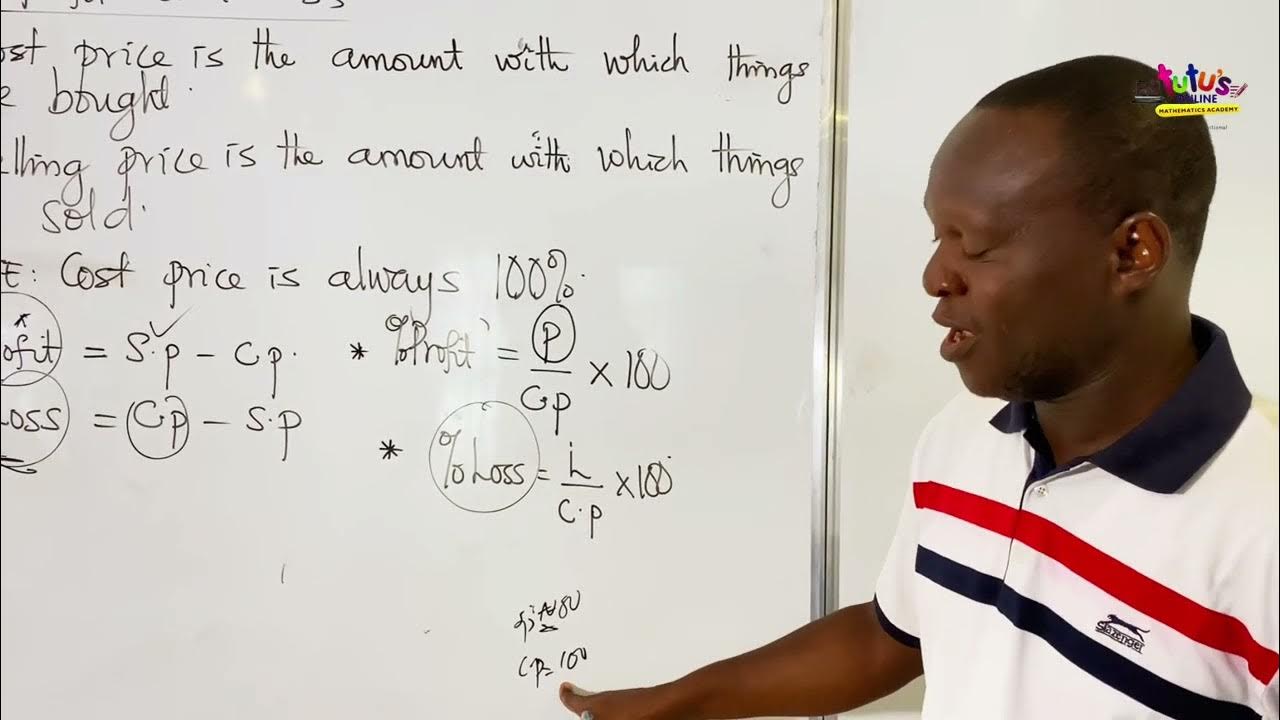 ost price is the amount with which things
e bought.
lling price is the amount with which things
sold.
E: Cost price is always 100%.
ofit = S.p - Cp. * %Profit = P/Cp × 100
Loss = Cp - S.p * %Loss = L/C.p × 100
Cp = 100
tutu's
ONLINE
MATHEMATICS ACADEMY
Slazenger